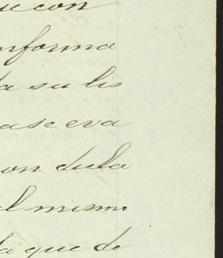 que con
nforma
da su lis
ase eva
con dula
al mismo
la que de